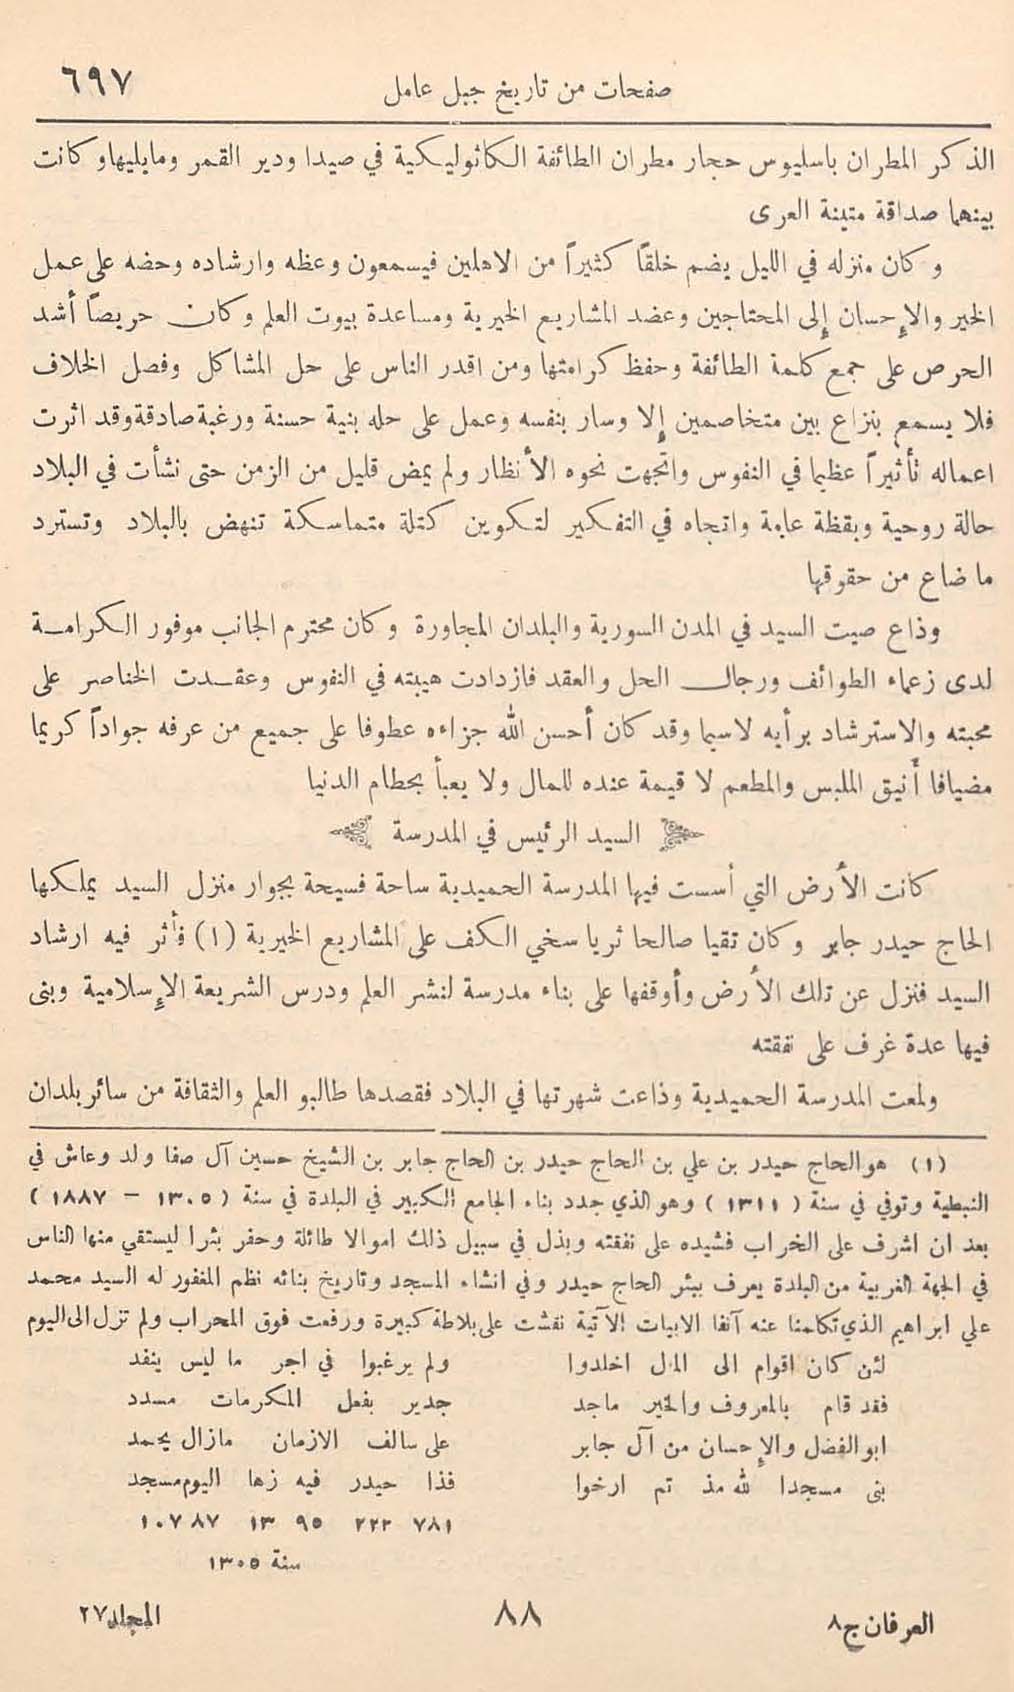 صفحات من تاريخ جبل عامل ٦٩٧
الذكر المطران باسليوس حجار مطران الطائفة الكاثوليكية في صيدا ودير القمر ومايليها وكانت
بينهما صداقة متينة العرى
وكان منزله في الليل يضم خلقاً كثيراً من الاهلين فيسمعون وعظه وارشاده وحضه على عمل
الخير والإحسان إلى المحتاجين وعضد المشاريع الخيرية ومساعدة بيوت العلم وكان حريصاً أشد
الحرص على جمع كلمة الطائفة وحفظ كرامتها ومن اقدر الناس على حل المشاكل وفصل الخلاف
فلا يسمع بنزاع بين متخاصمين إلا وسار بنفسه وعمل على حله بنية حسنة ورغبة صادقة وقد اثرت
اعماله تأثيراً عظيما في النفوس واتجهت نحوه الأنظار ولم يمض قليل من الزمن حتى نشأت في البلاد
حالة روحية ويقظة عامة واتجاه في التفكير لتكوين كتلة متماسكة تنهض بالبلاد وتسترد
ما ضاع من حقوقها
وذاع صيت السيد في المدن السورية والبلدان المجاورة وكان محترم الجانب موفور الكرامة
لدى زعماء الطوائف ورجال الحل والعقد فازدادت هيبته في النفوس وعقدت الخناصر على
محبته والاسترشاد برأيه لاسيما وقد كان أحسن الله جزاءه عطوفا على جميع من عرفه جواداً كريما
مضيافا أنيق الملبس والمطعم لا قيمة عنده للمال ولا يعبأ بحطام الدنيا
السيد الرئيس في المدرسة
كانت الأرض التي أسست فيها المدرسة الحميدية ساحة فسيحة بجوار منزل السيد يملكها
الحاج حيدر جابر وكان تقيا صالحا ثريا سخي الكف على المشاريع الخيرية (١) فأثر فيه ارشاد
السيد فنزل عن تلك الأرض وأوقفها على بناء مدرسة لنشر العلم ودرس الشريعة الإسلامية وبنى
فيها عدة غرف على نفقته
ولمعت المدرسة الحميدية وذاعت شهرتها في البلاد فقصدها طالبو العلم والثقافة من سائر بلدان
(١) هو الحاج حيدر بن علي بن الحاج حيدر بن الحاج جابر بن الشيخ حسين آل صفا ولد وعاش في
النبطية وتوفي في سنة (١٣١١) وهو الذي جدد بناء الجامع الكبير في البلدة في سنة (١٣٠٥ – ١٨٨٧)
بعد ان اشرف على الخراب فشيده على نفقته وبذل في سبيل ذلك اموالا طائلة وحفر بئرا ليستقي منها الناس
في الجهة الغربية من البلدة يعرف ببئر الحاج حيدر وفي انشاء المسجد وتاريخ بنائه نظم المغفور له السيد محمد
علي ابراهيم الذي تكلمنا عنه آنفا الابيات الآتية نقشت على بلاطة كبيرة ورفعت فوق المحراب ولم تزل الى اليوم
لئن كان اقوام الى المال اخلدوا ولم يرغبوا في اجر ما ليس ينفد
فقد قام بالمعروف والخير ماجد جدير بفعل المكرمات مسدد
ابو الفضل والإحسان من آل جابر على سالف الازمان مازال يحمد
بنى مسجدا لله مذ تم ارخوا فذا حيدر فيه زها اليوم مسجد
٧٨١ ٢٢٢ ٩٥ ١٣ ٨٧ ١٠٧
سنة ١٣٠٥
العرفان ج٨ ٨٨ المجلد ٢٧